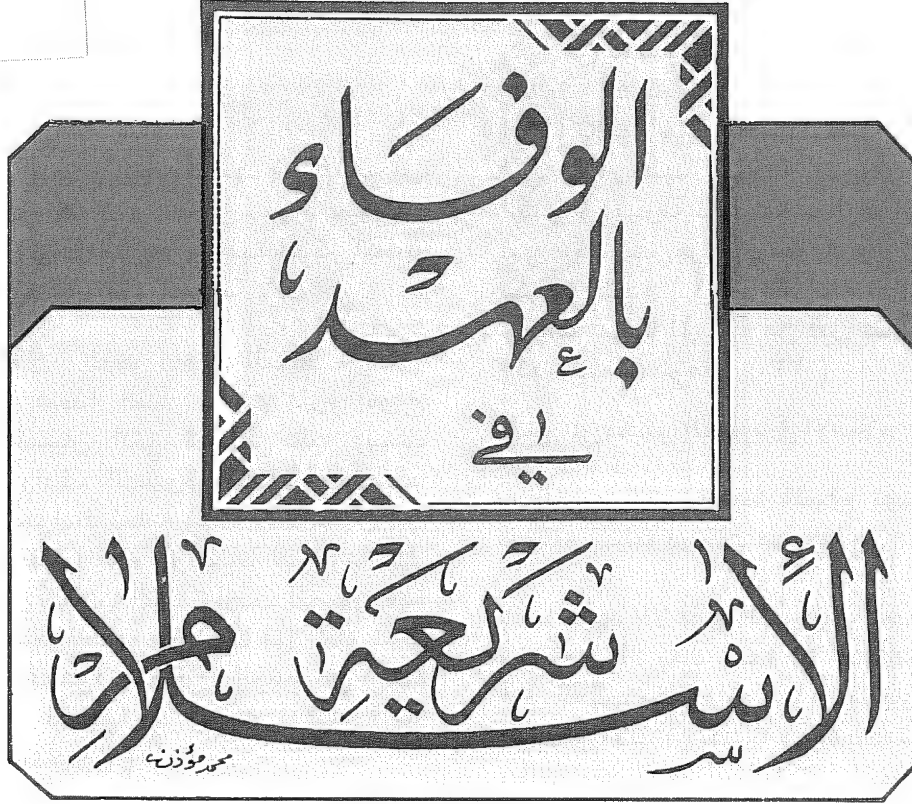 الوفاء
بالعهد
في
شريعة الإسلام
محمد مؤذن